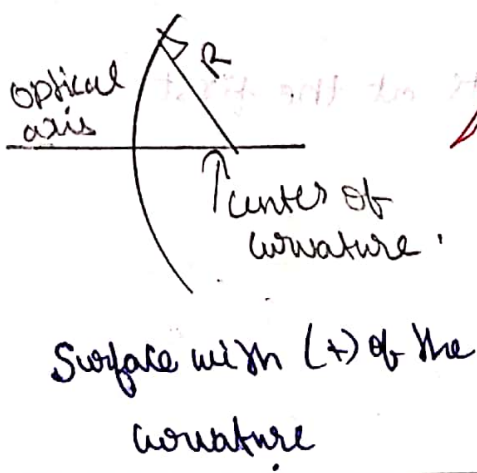 optical
axis
R
center of
curvature.
Surface with (+) of the
curvature